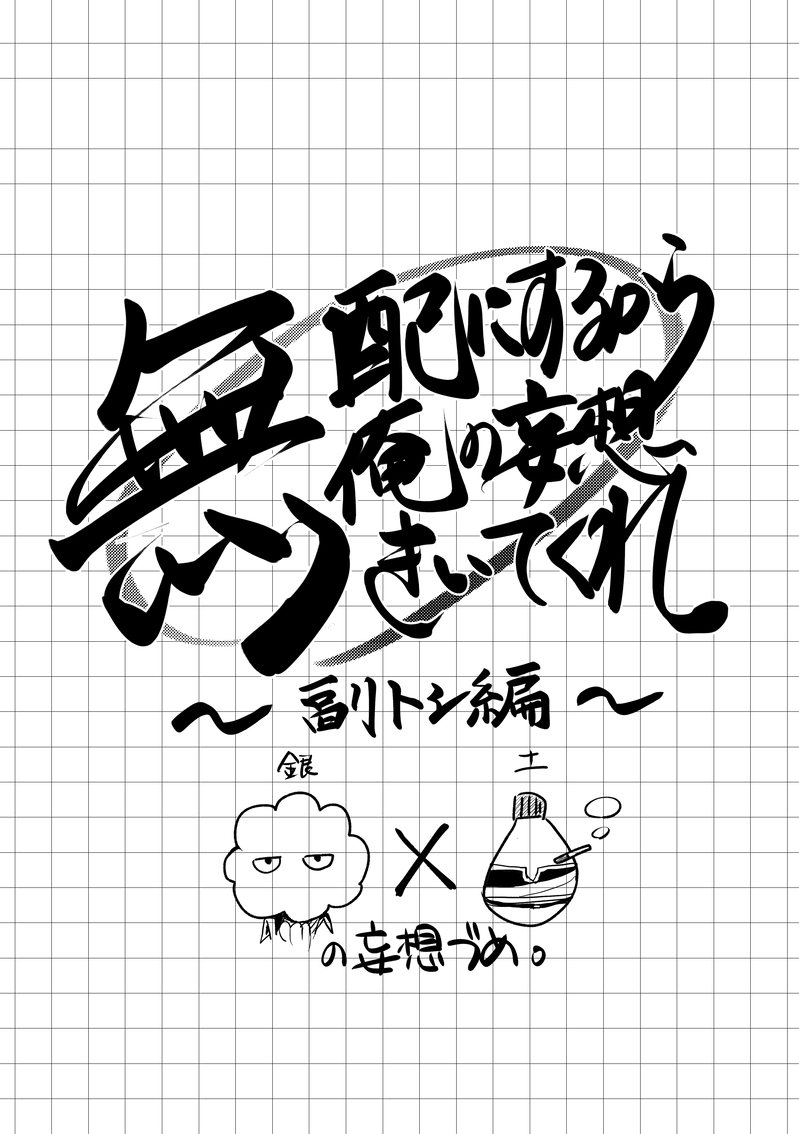 無配にするから
俺の妄想
きいてくれ
～副トシ編～
銀 土
×
の妄想づめ。